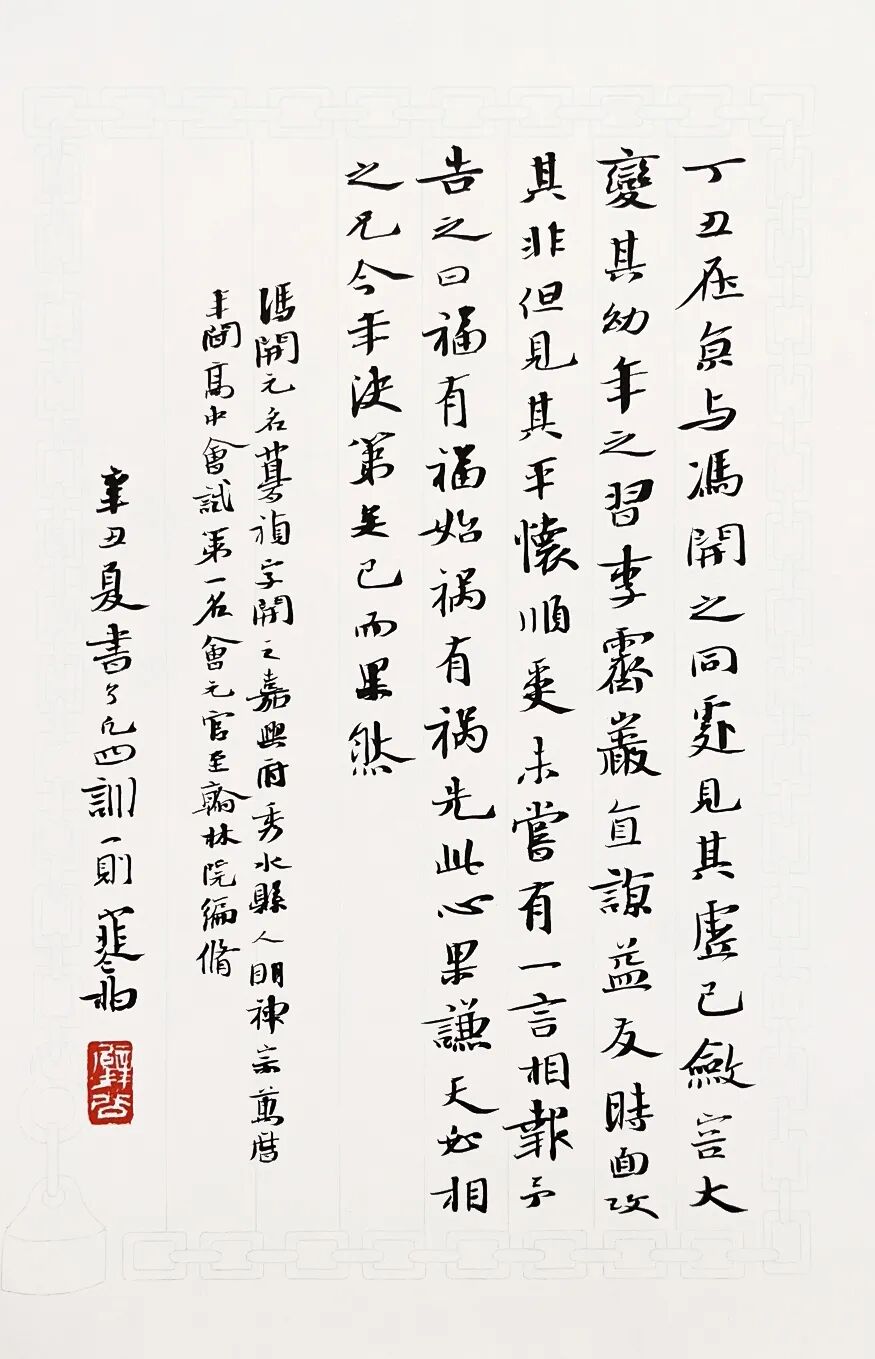 丁丑在京与馮開之同處見其虛己斂容大
變其幼年之習李霽巖直諒益友時面攻
其非但見其平懷順受未嘗有一言相報予
告之曰福有福始祸有祸先此心果謙天必相
之兄今年決第矣已而果然
馮開元名夢禎字開之嘉興府秀水縣人明神宗萬曆
年間高中會試第一名會元官至翰林院編脩
辛丑夏書了凡四訓一則